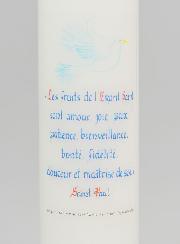 « Les fruits de l'Esprit Saint
sont amour, joie, paix,
patience, bienveillance,
bonté, fidélité,
douceur et maîtrise de soi »
Saint Paul